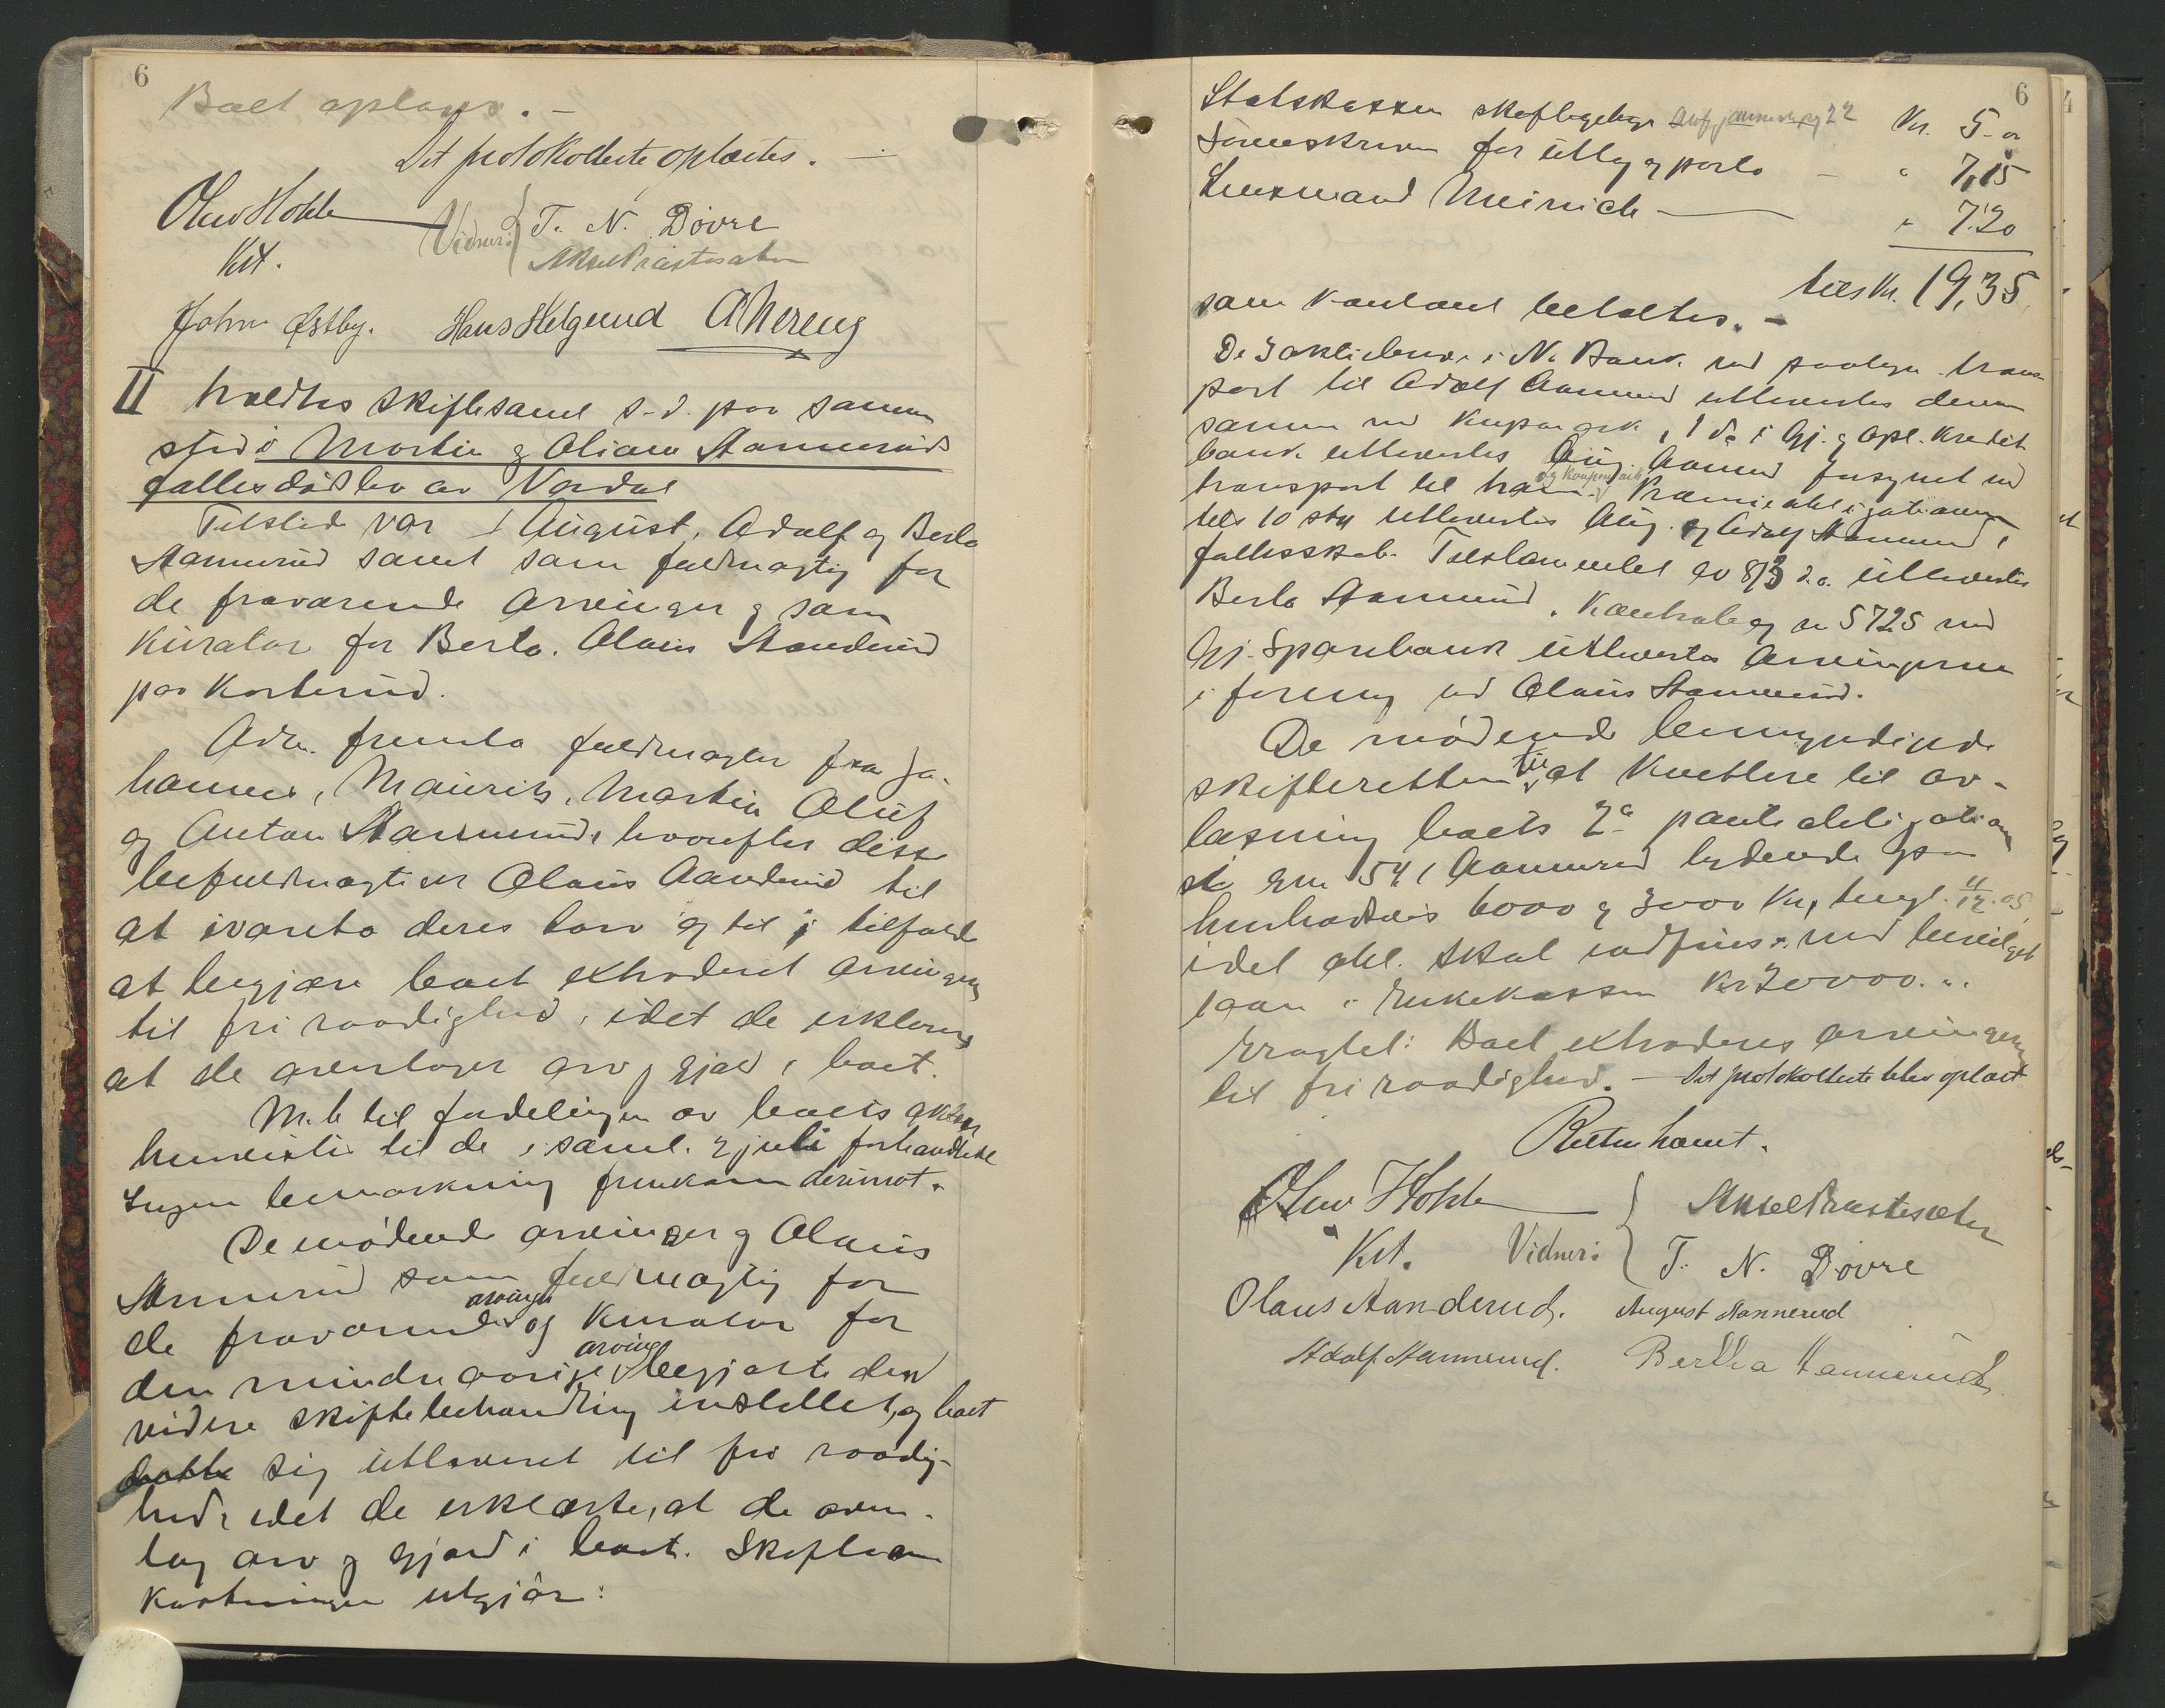 6
Boet oplaus. –
Det protokollerte oplæstes. –
Olav Hohle
Kst.
Vidner: T. N. Dovre
Aksel Præstesæter
John Østby. Hans Helgerud A Nereng
II holdtes skiftesaml s. d. paa samme
sted i Martin & Oliane Aannerud
fælles dødsbo av Vardal
Tilstede var August, Adolf og Berta
Aannerud samt som fuldmægtig for
de fraværende arvinger & som
kurator for Berta, Olaus Aanderud
paa Korterud.
Adm. fremla fuldmagter fra Jo-
hannes, Maurits, Martin Oluf
og Anton Aannerud, hvorefter disse
befuldmægtiger Olaus Aanderud til
at ivareta deres tarv og til i tilfælde
at begjære boet extraderet arvingerne
til fri raadighed, idet de erklærer
at de overtager arv & gjæld i boet.
M. h. til fordelingen av boets aktiver
henvistes til de i saml. 2 juli forhandlede
Ingen bemærkning fremkom derimot.
De mødende arvinger & Olaus
Aannerud som fuldmægtig for
de fraværende arvinger og kurator for
den mindreaarige arving begjærte den
videre skiftebehandling indstillet, og boet
sig utleveret til fri raadig-
hed, idet de erklærte, at de over-
tog arv & gjæld i boet. Skifteom
kostningen utgjør:
6
Statskassen skiftegebyr 22 Kr. 5 -
Sorenskriver for utlæg & porto – " 7,15
Lensmand Meinich – " 7.20
tils Kr. 19,35
som kontant betaltes. –
De 3 aktiebreve i N. Bank med paateg. trans
port til Adolf Aannerud utleveredes denne
sammen med kuponark, 1 do i Gj. & Opl. Kredit
bank utleveredes Aug. Aannerud forsynet med
transport til ham og kuponark. Præmieobligationene
tils 10 stk utleveredes Aug. og Adolf Aannerud i
fællesskab. Testamentet av 8/3 d. a. utleveredes
Berta Aannerud. Kontrabog no 5725 med
Gj. Sparebank utleveredes arvingerne
i forening ved Olaus Aannerud.
De mødende bemyndigede
skifteretten til at kvittere til av-
læsning boets 2 panteobligationer
i gnr 54,1 Aannerud lydende paa
henholdsvis 6000 & 3000 Kr, tingl. 11/12. 05,
idet obl. skal indfries med bevilget
laan i Enkekassen Kr 20000...
Eragtet: Boet extraderes arvingerne
til fri raadighed. – Det protokollerte blev oplæst
Retten hævet.
Olav Hohle
Kst.
Vidner: Aksel Præstesæter
T. N. Dovre
Olaus Aanderud. August Aannerud
Adolf Aannerud. Bertha Aannerud.